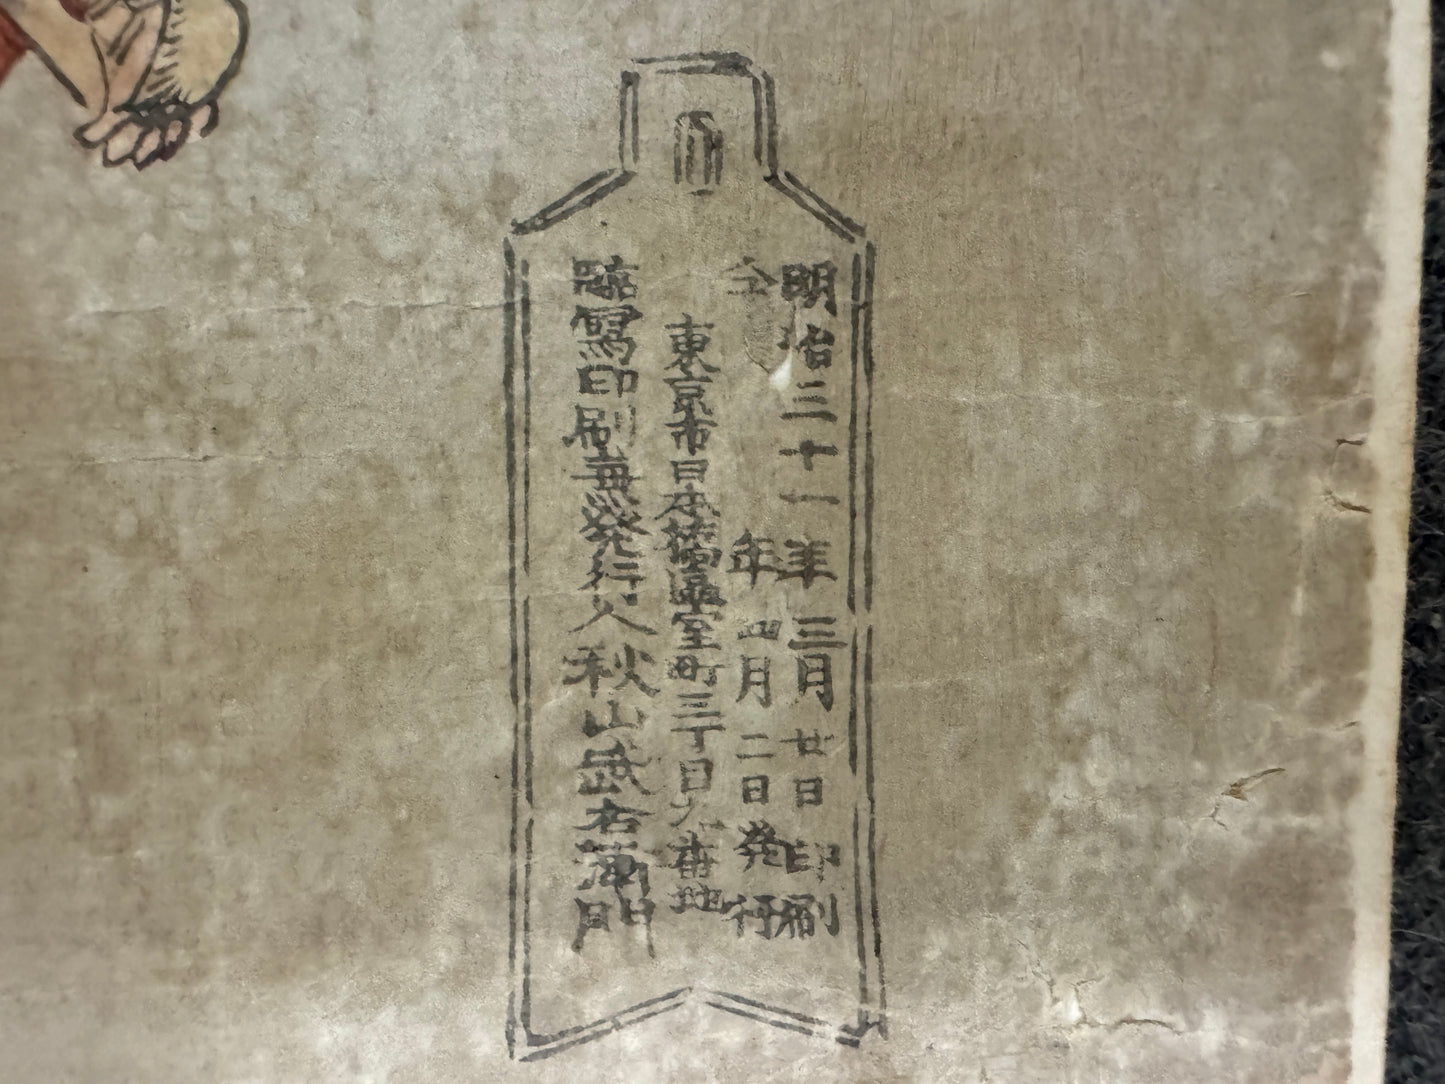 明治三十一年三月廿日印刷
仝年四月二日発行
東京市日本橋區室町三丁目九番地
臨寫印刷兼発行人秋山武右衛門